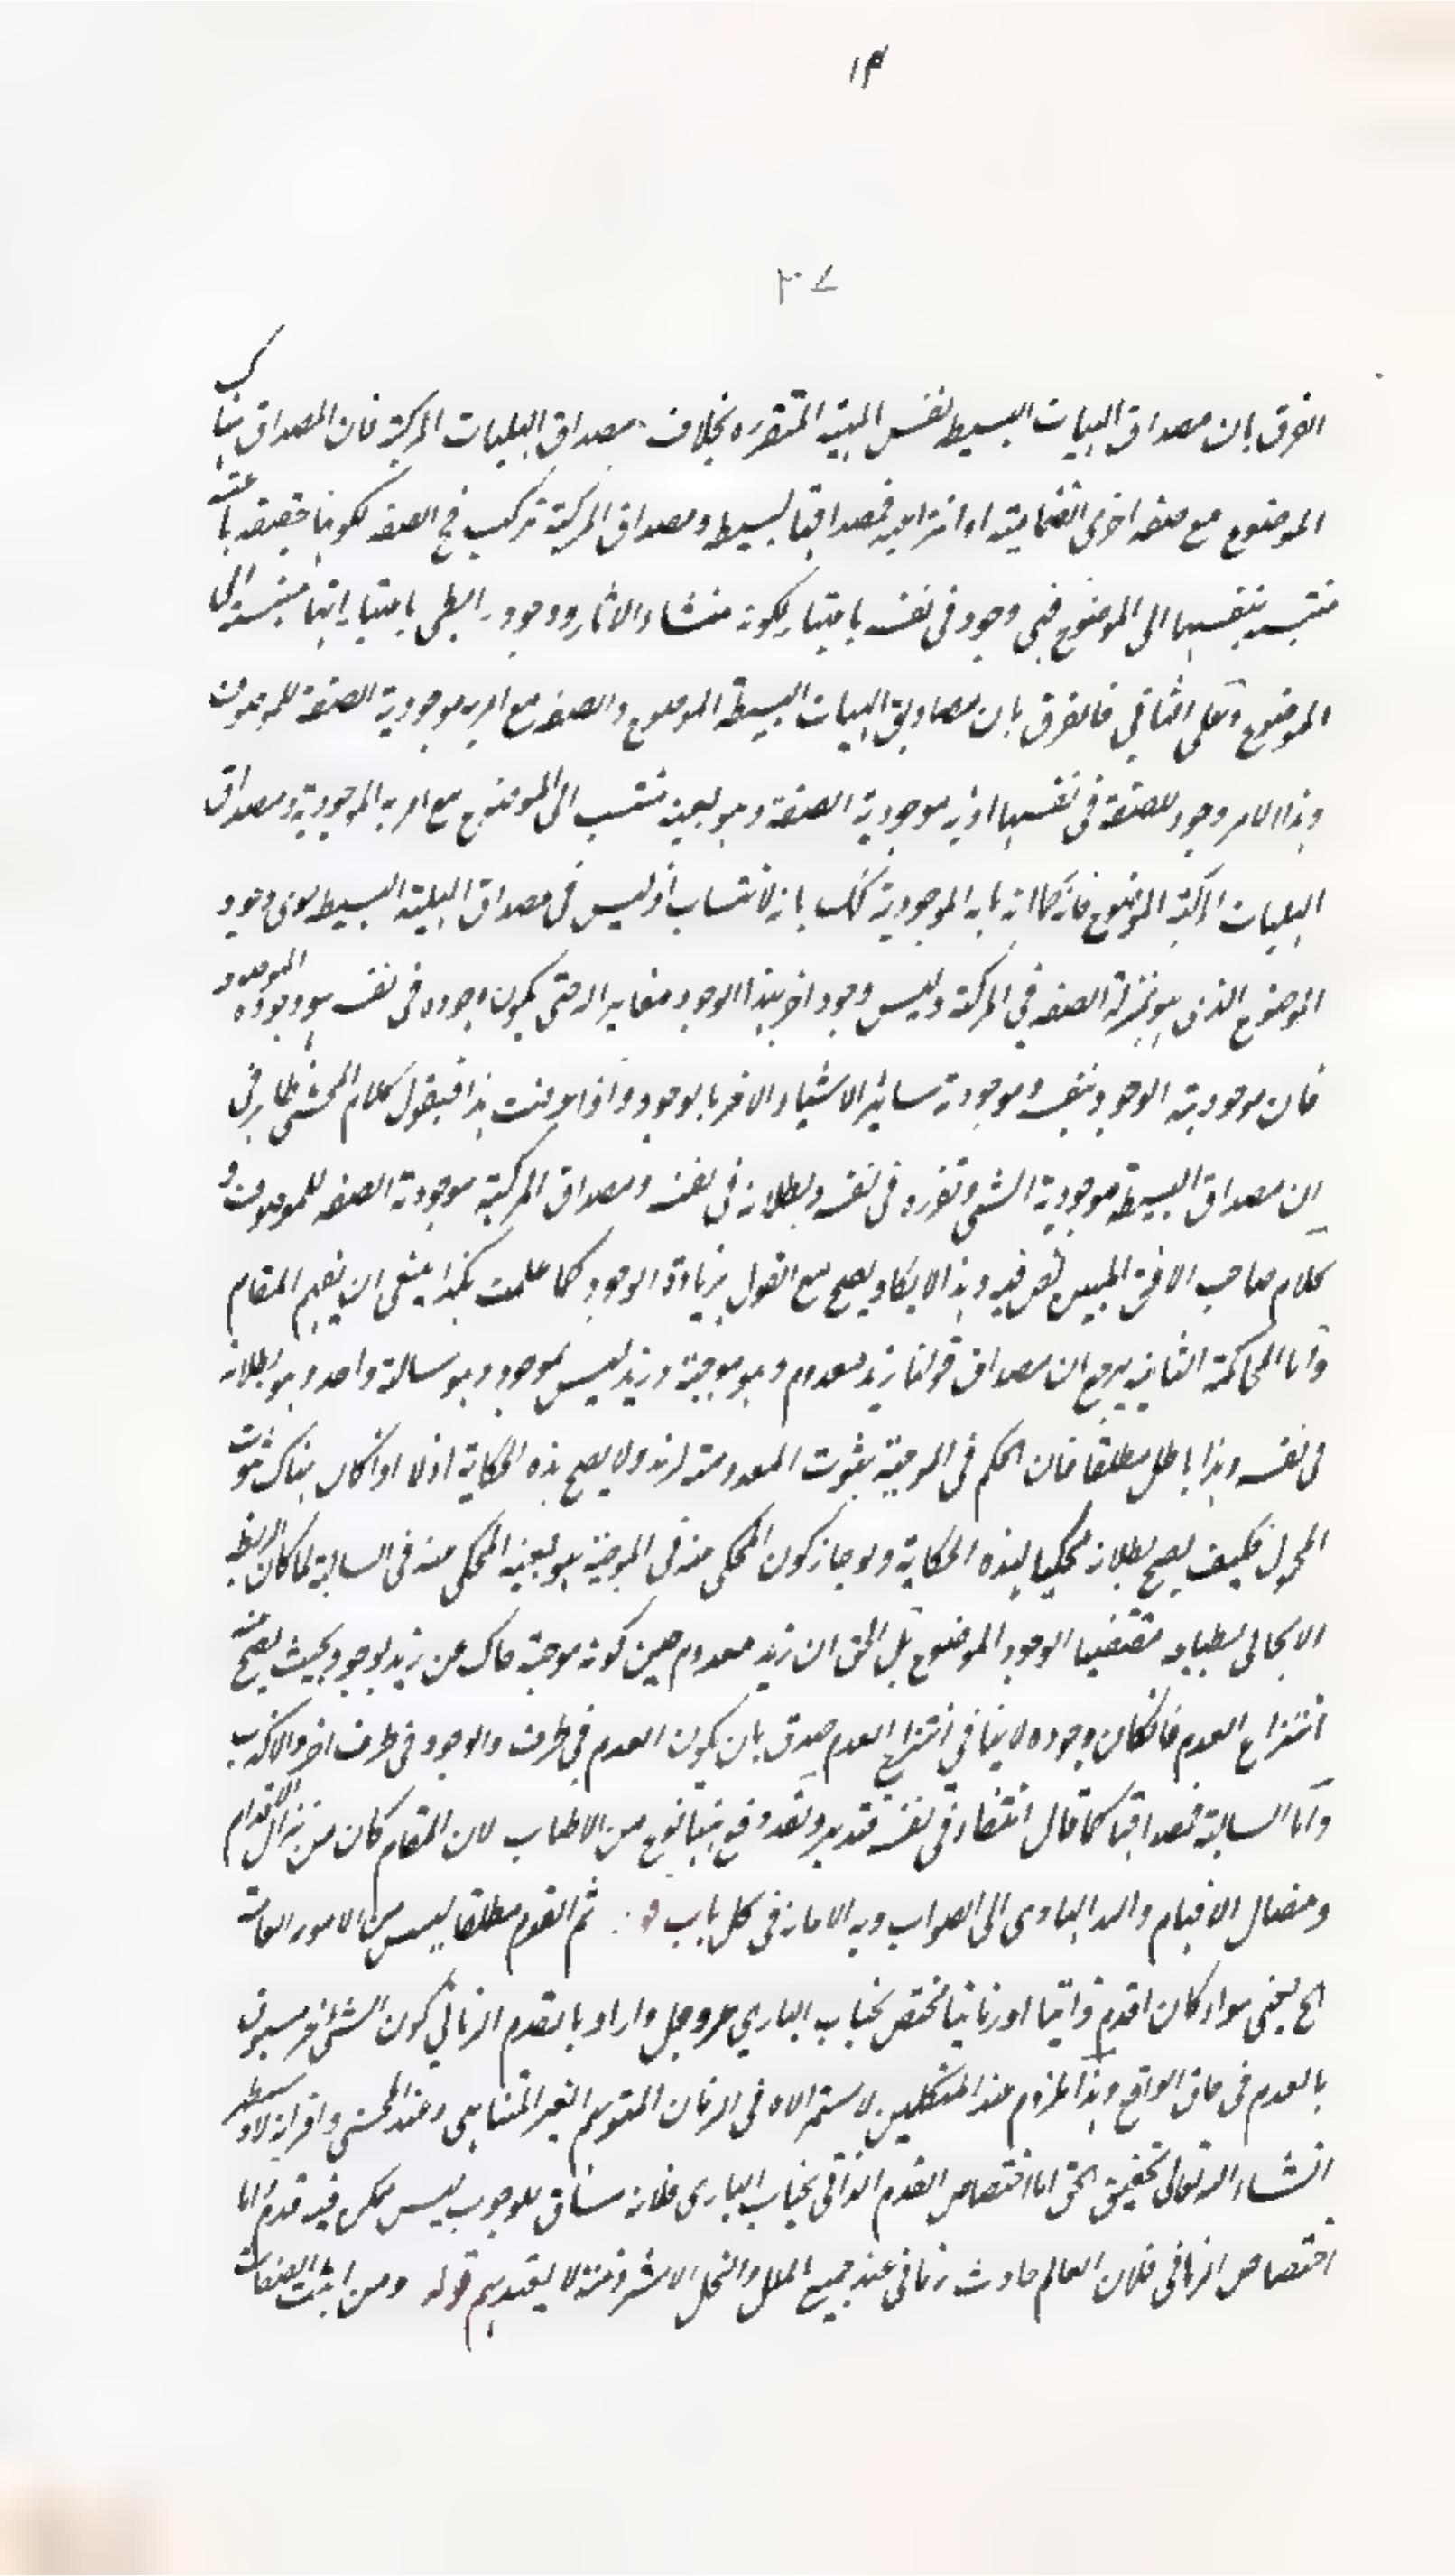 ١٣
٢٧
الفرق بان مصداق الهليات البسيطه نفس المهية المتقرره بخلاف مصداق الهليات المركبة فان المصداق هناك
الموضوع مع صفه اخرى انضمامية او انتزاعيه فمصداقها لبسيط ومصداق المركبة تركيب فى الصفه لكونها حقيقه ناعتة
منتسبه بنفسها الى الموضوع فهى وجود فى نفسه باعتبار كونه منشاء الاثار ووجود رابطى باعتبار انها منتسبة الى
الموضوع وعلى الثانى فالفرق بان مصاديق الهليات البسيطة الموضوع والصفه مع امر به موجودية الصفة للموصوف
وهذا الامر وجود للصفة فى نفسها اذ به موجودية الصفة وهو بعينه منتسب الى الموضوع مع امر به الموجودية ومصداق
الهليات المركبة الموضوع فانه كما انه مابه الموجودية كك مابه الانتساب اذ ليس فى مصداق الهلية البسيطه سوى وجود
الموضوع الذى هو بمنزلة الصفه فى المركبة وليس وجود اخر لهذا الوجود مغاير اله حتى يكون وجوده فى نفسه هو وجوده لموضوعه
فان موجودية الوجود بنفسه وموجودية سائر الاشياء الاخر بالوجود واذا عرفت هذا فنقول كلام المحشى ظاهر فى
ان مصداق البسيطة موجودية الشئ وتقرره فى نفسه وبطلانه فى نفسه ومصداق المركبة موجودية الصفه للموصوف و
كلام صاحب الافق المبين نص فيه وهذا لا يكاد يصح مع القول بزيادة الوجود كما علمت هكذا ينبغى ان يفهم المقام
واما المحاكمة الثانيه يرجع ان مصداق قولنا زيد معدوم وهو موجبة وزيد ليس بموجود وهو سالبة واحد وهو بطلانه
فى نفسه وهذا باطل مطلقا فان الحكم فى الموجبة بثبوت المعدومية لزيد ولا يصح هذه الحكاية اولا اذا كان هناك ثبوت
المحمول فكيف يصح بطلانه محكيا لهذه الحكاية ولو جاز كون المحكى عنه فى الموجبة هو بعينه المحكى عنه فى السالبة لما كان الربط
الايجابى بطباعه مقتضيا لوجود الموضوع بل الحق ان زيد معدوم حين كونه موجبة حاك عن زيد الموجود بحيث يصح عنه
انتزاع العدم فان كان وجوده لا ينافى انتزاع العدم صدق بان يكون العدم فى ظرف والوجود فى ظرف اخر والا كذب
واما السالبة فمصداقها كما قال انتفاء فى نفسه فتدبر وقد وقع ههنا نوع من الاطناب لان المقام كان من مزال الاقدام
ومضال الافهام والله الهادى الى الصواب وبه الامانة فى كل باب قو: ثم القدم مطلقا ليس من الامور العامة
الخ يعنى سواء كان القدم ذاتيا او زمانيا مختص بجناب البارى عز وجل واراد بالقدم الزمانى كون الشئ غير مسبوق
بالعدم فى حاق الواقع وهذا ملزوم عند المتكلمين لاستمراره فى الزمان المتوهم الغير المتناهى وعند المحشى واقرانه لا وسيظهر
انشاء الله تعالى تحقيق الحق اما اختصاص القدم الذاتى بجناب البارى فلانه مساوق للوجوب ليس ممكن فيه قدم اما
اختصاص الزمانى فلان العالم حادث زمانى عند جميع الملل والنحل الا شرذمة لا يعتد بهم قوله ومن اثبت الصفات